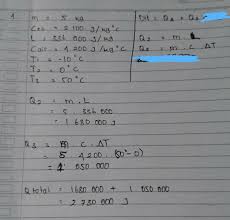 1 m = 5 kg
Ces = 2 100 J/kg°C
L = 336 000 J/kg
Cair = 4 200 J/kg°C
T1 = -10°C
T2 = 0°C
T3 = 50°C
Dit = Q2 + Q3
Q2 = m . L
Q3 = m . C . ΔT
Q2 = m . L
= 5 . 336 000
= 1 680 000
Q3 = m . C . ΔT
= 5 . 4200 . (50°-0)
= 1 050 000
Q total = 1680 000 + 1 050 000
= 2 730 000 J